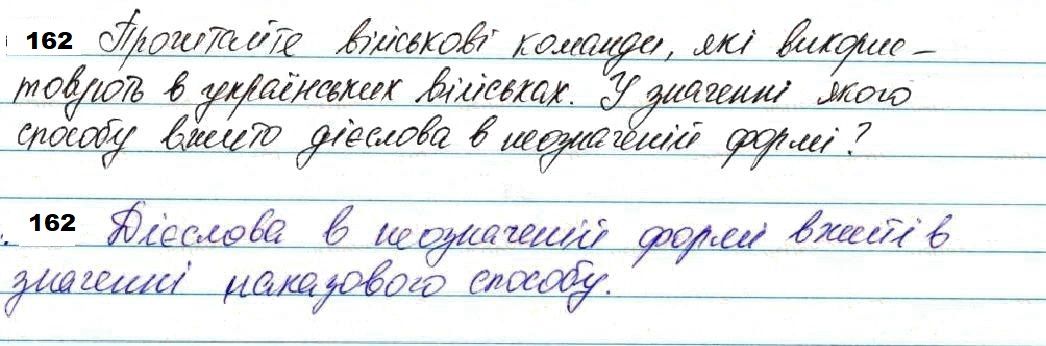 162 Прочитайте військові команди, які викорис-
товують в українських військах. У значенні якого
способу вжито дієслова в неозначеній формі?
162 Дієслова в неозначеній формі вжиті в
значенні наказового способу.